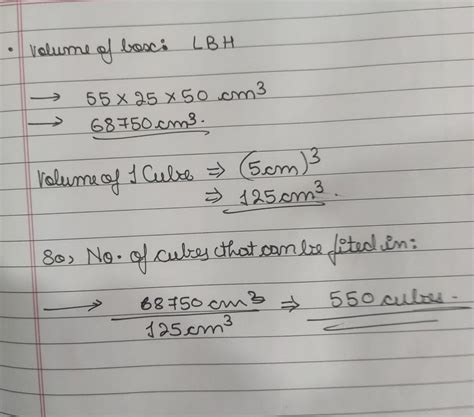 • Volume of box: LBH
→ 55 × 25 × 50 cm³
→ 68750 cm³.
Volume of 1 Cube ⇒ (5cm)³
⇒ 125cm³.
So, No. of cubes that can be fited in:
→ 68750 cm³ ⇒ 550 cubes.
125 cm³